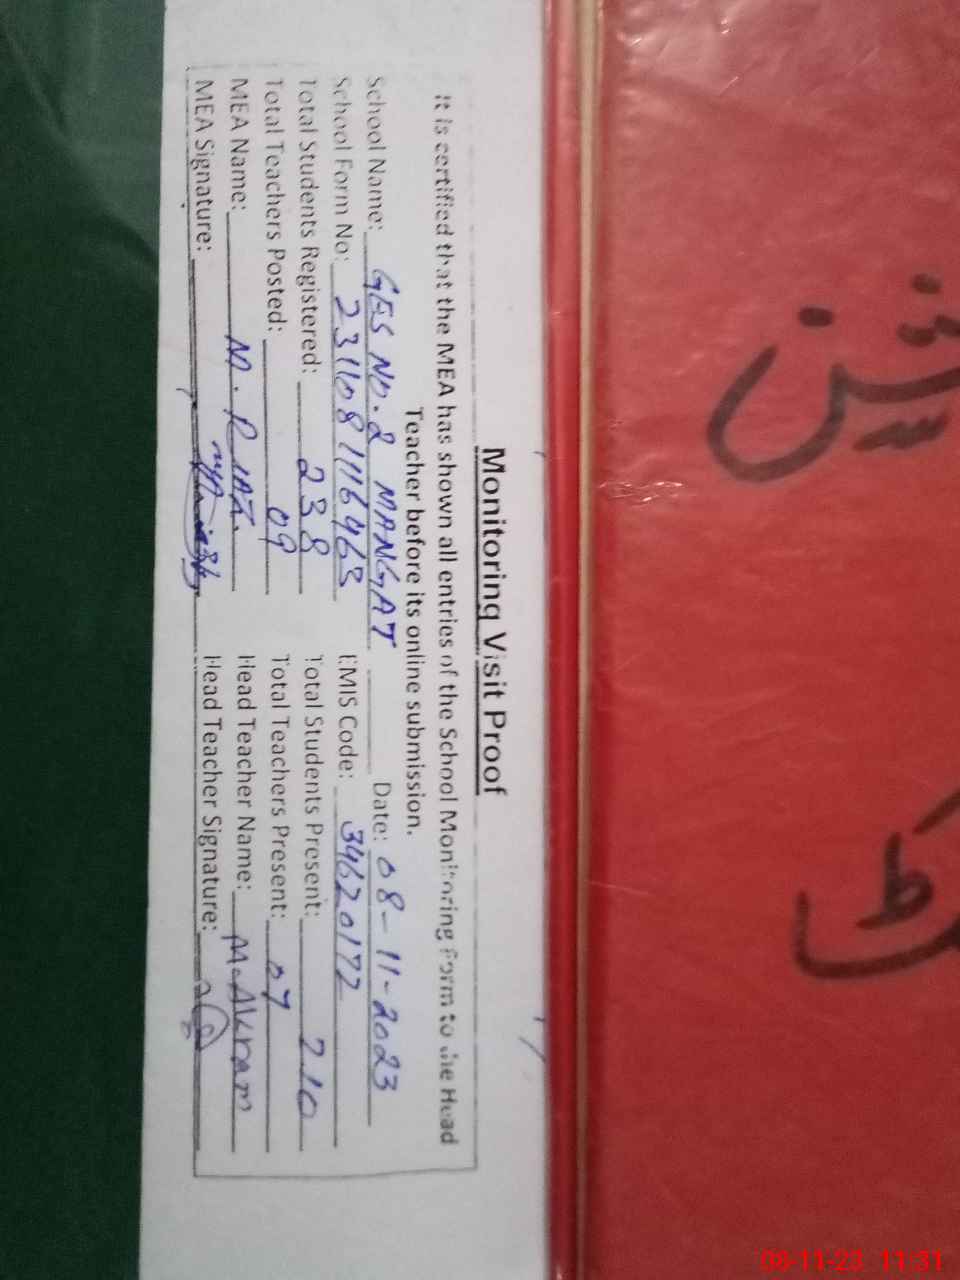 Monitoring Visit Proof
It is certified that the MEA has shown all entries of the School Monitoring Form to the Head
Teacher before its online submission.
School Name: GES NO.2 MANGAT Date: 08-11-2023
School Form No: EMIS Code: 34620172
Total Students Registered: 238 Total Students Present: 210
Total Teachers Posted: 09 Total Teachers Present: 07
MEA Name: M. RIAZ. Head Teacher Name: M. Akram
MEA Signature: Head Teacher Signature:
08-11-23 11:31